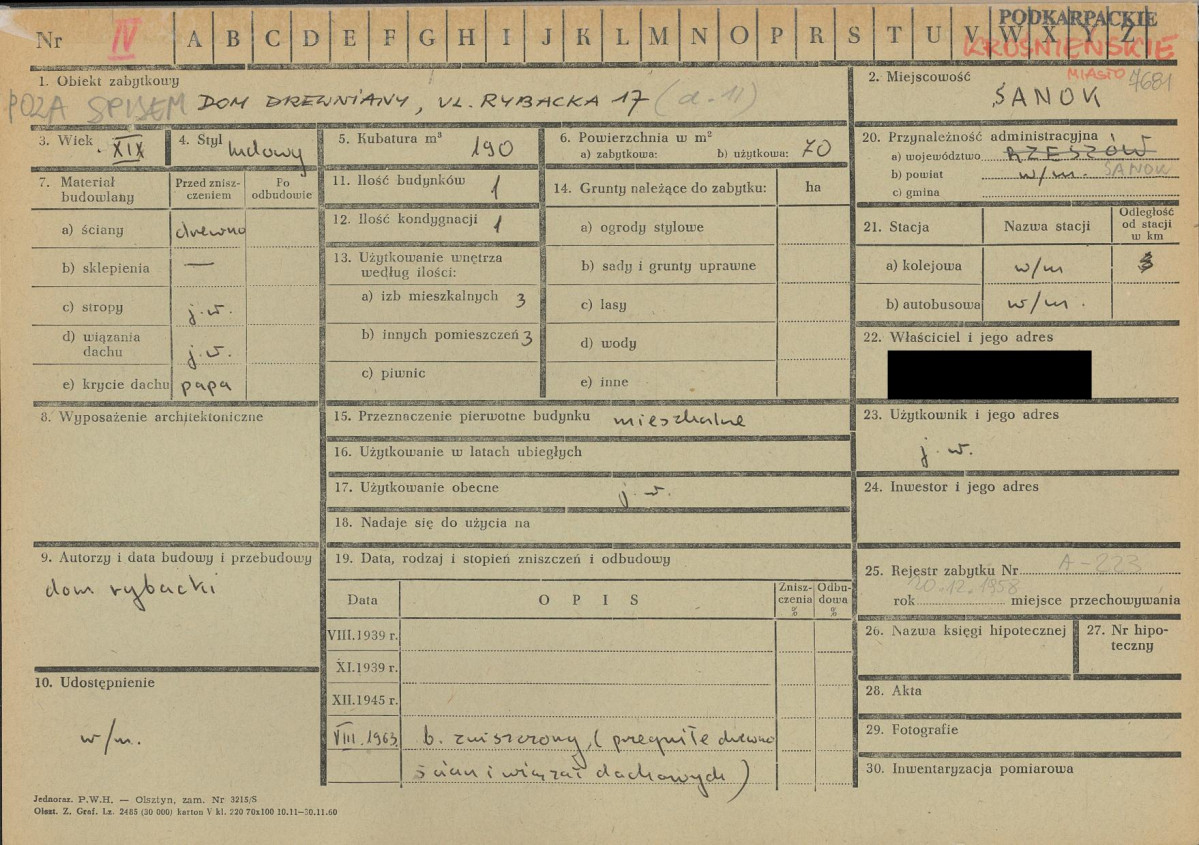 Nr IV A B C D E F G H I J K L M N O P R S T U V W X Y Z
PODKARPACKIE
KROŚNIEŃSKIE
MIASTO 7681
1. Obiekt zabytkowy
POZA SPISEM DOM DREWNIANY, UL. RYBACKA 17 (d. 11)
2. Miejscowość
SANOK
3. Wiek XIX
4. Styl ludowy
5. Kubatura m³ 190
6. Powierzchnia w m²
a) zabytkowa: b) użytkowa: 70
7. Materiał budowlany
Przed zniszczeniem
Po odbudowie
a) ściany drewno
b) sklepienia —
c) stropy j.w.
d) wiązania dachu j.w.
e) krycie dachu papa
8. Wyposażenie architektoniczne
9. Autorzy i data budowy i przebudowy
dom rybacki
10. Udostępnienie
w/m.
11. Ilość budynków 1
12. Ilość kondygnacji 1
13. Użytkowanie wnętrza według ilości:
a) izb mieszkalnych 3
b) innych pomieszczeń 3
c) piwnic
14. Grunty należące do zabytku: ha
a) ogrody stylowe
b) sady i grunty uprawne
c) lasy
d) wody
e) inne
15. Przeznaczenie pierwotne budynku mieszkalne
16. Użytkowanie w latach ubiegłych
17. Użytkowanie obecne j.w.
18. Nadaje się do użycia na
19. Data, rodzaj i stopień zniszczeń i odbudowy
Data OPIS Zniszczenia % Odbudowa %
VIII.1939 r.
XI.1939 r.
XII.1945 r.
VIII.1963 b. zniszczony, (przegniłe drewno
ścian i wiązań dachowych)
20. Przynależność administracyjna
a) województwo RZESZÓW
b) powiat w/m. SANOK
c) gmina
21. Stacja Nazwa stacji Odległość od stacji w km
a) kolejowa w/m 3
b) autobusowa w/m.
22. Właściciel i jego adres
23. Użytkownik i jego adres
j.w.
24. Inwestor i jego adres
25. Rejestr zabytku Nr A-223
rok 20.12.1958 miejsce przechowywania
26. Nazwa księgi hipotecznej
27. Nr hipoteczny
28. Akta
29. Fotografie
30. Inwentaryzacja pomiarowa
Jednoraz. P.W.H. — Olsztyn, zam. Nr 3215/S
Olszt. Z. Graf. Lz. 2485 (30 000) karton V kl. 220 70x100 10.11—30.11.60